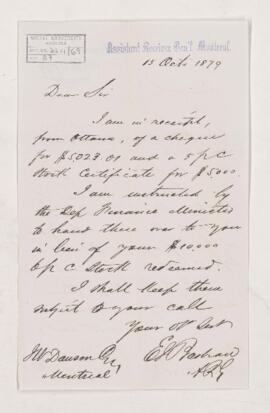 Assistant Receiver Gen'l. Montreal.
15 Octr 1879
Dear Sir
I am in receipt,
from Ottawa, of a cheque
for $5023.01 and a 5 p c
Stock Certificate for $5000.
I am instructed by
the Dep Finance Minister
to hand these over to you
in lieu of your $10.000
6 p c Stock redeemed.
I shall keep them
subject to your call
Your Ob Svt
JW Dawson Esq
Montreal